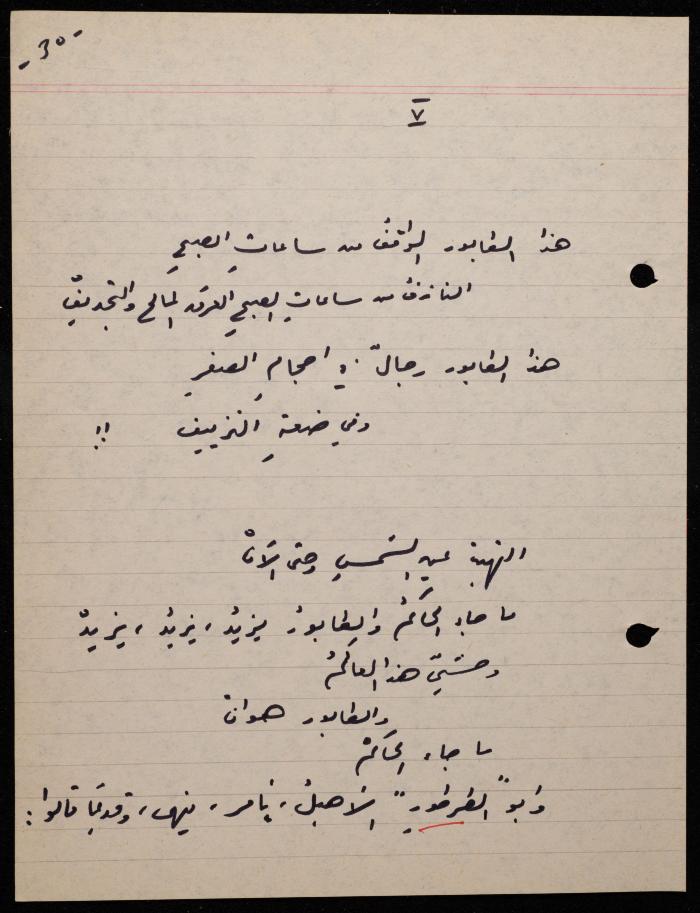 -٣٠-
٧
هذا الطابور الواقفُ من ساعاتِ الصبحِ
النازفُ من ساعاتِ الصبحِ العرقَ المالح والتجديفْ
هذا الطابور رجالٌ في احجامِ الصفرِ
وفي ضعةِ التزييف !!
التهبتْ عين الشمسِ وحتى الآنْ
ما جاء الحاكمُ والطابورُ يزيدُ ، يزيدُ ، يزيدْ
وحشيٌّ هذا العالمُ
والطابور هوانْ
ما جاء الحاكمْ
وابو "الطرطورِ" الأهبلُ ، يأمر ، ينهى ، وقديمًا قالوا :